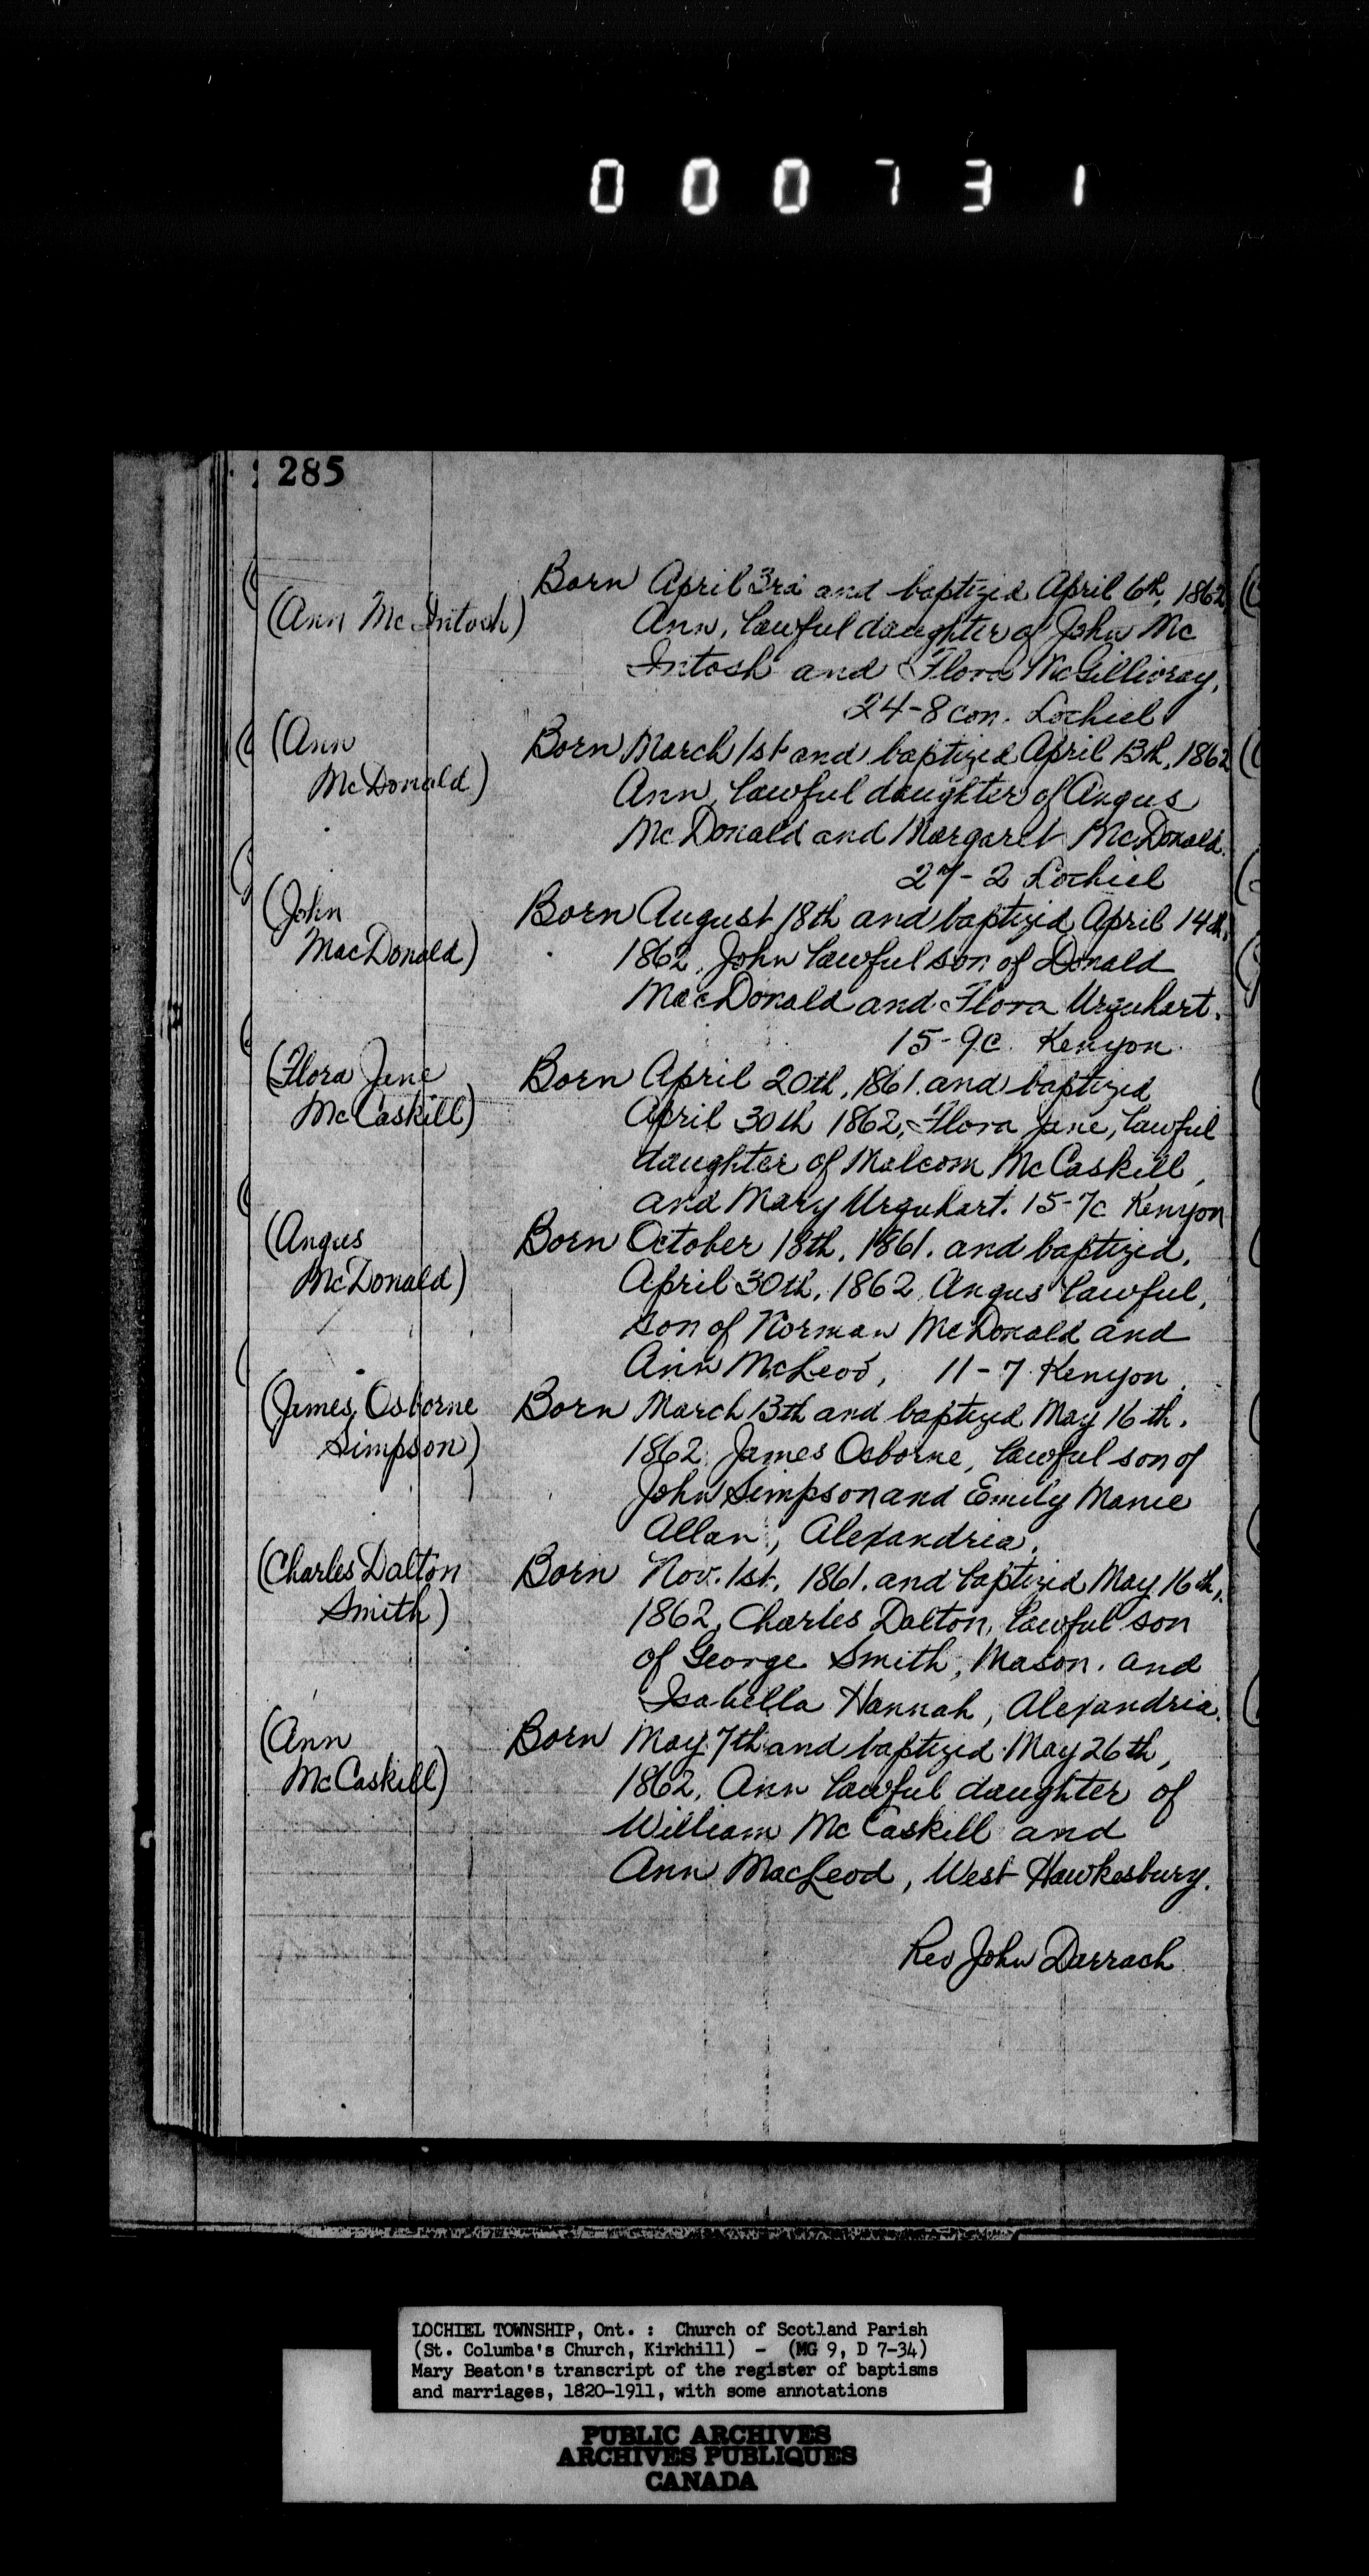 000731
285
Born April 3rd and baptized April 6th, 1862
(Ann McIntosh)
Ann, lawful daughter of John Mc
Intosh and Flora McGillivray,
24-8 con. Lochiel
(Ann
McDonald)
Born March 1st and baptized April 13th, 1862
Ann, lawful daughter of Angus
McDonald and Margaret McDonald.
27-2 Lochiel
(John
MacDonald)
Born August 18th and baptized April 14th,
1862, John lawful son of Donald
MacDonald and Flora Urquhart.
15-9c. Kenyon.
(Flora Jane
McCaskill)
Born April 20th, 1861. and baptized
April 30th 1862, Flora Jane, lawful
daughter of Malcom McCaskill,
and Mary Urquhart. 15-7c Kenyon
(Angus
McDonald)
Born October 18th, 1861. and baptized,
April 30th, 1862, Angus lawful,
son of Norman McDonald and
Ann McLeod, 11-7 Kenyon.
(James Osborne
Simpson)
Born March 13th and baptized May 16th.
1862 James Osborne, lawful son of
John Simpson and Emily Manie
Allan, Alexandria.
(Charles Dalton
Smith)
Born Nov. 1st, 1861. and baptized May 16th,
1862, Charles Dalton, lawful son
of George Smith, Mason. and
Isabella Hannah, Alexandria.
(Ann
McCaskill)
Born May 7th and baptized May 26th,
1862, Ann lawful daughter of
William McCaskill and
Ann MacLeod, West Hawkesbury.
Rev John Darrach
LOCHIEL TOWNSHIP, Ont. : Church of Scotland Parish
(St. Columba's Church, Kirkhill) - (MG 9, D 7-34)
Mary Beaton's transcript of the register of baptisms
and marriages, 1820-1911, with some annotations
PUBLIC ARCHIVES
ARCHIVES PUBLIQUES
CANADA